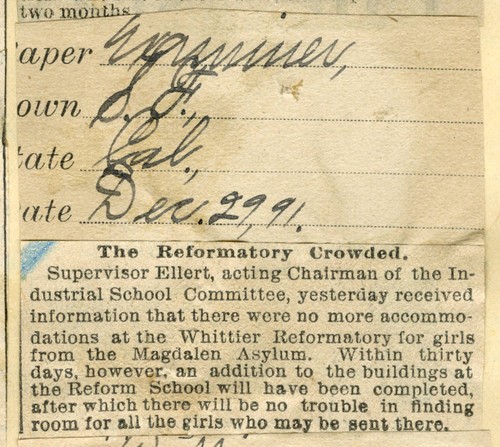 two months
Paper Examiner,
Town S.F.,
State Cal.,
Date Dec. 29, 91.
The Reformatory Crowded.
Supervisor Ellert, acting Chairman of the In-
dustrial School Committee, yesterday received
information that there were no more accommo-
dations at the Whittier Reformatory for girls
from the Magdalen Asylum. Within thirty
days, however, an addition to the buildings at
the Reform School will have been completed,
after which there will be no trouble in finding
room for all the girls who may be sent there.